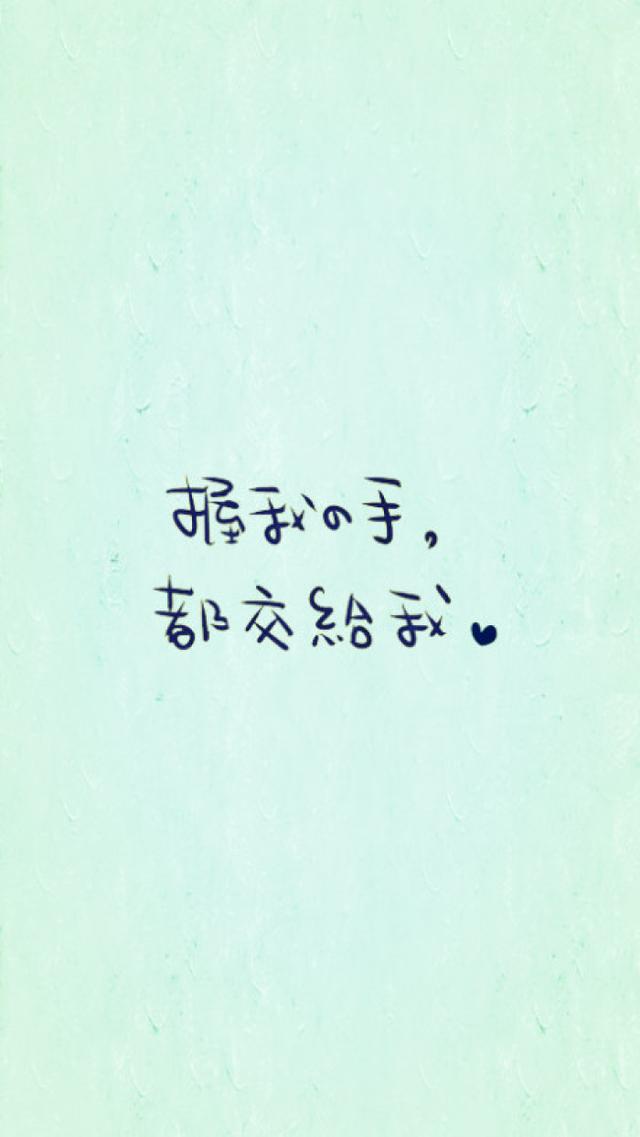 握我の手,
都交給我